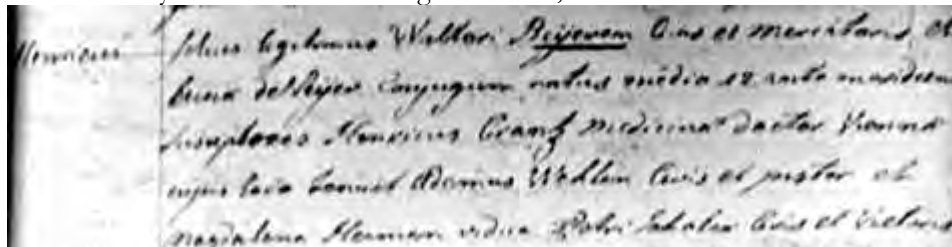 Henricus filius legitimus Walteri Beijerem Civis et mercatoris, et
de Rijer Conjugum natus media 12 ante meridiem
susceptores Henricus Crantz medicinae doctor Vienna
cujus loco tenuit Adamus Wehlen Civis et pistor et
Magdalena Herman vidua Petri Schaler Civis et